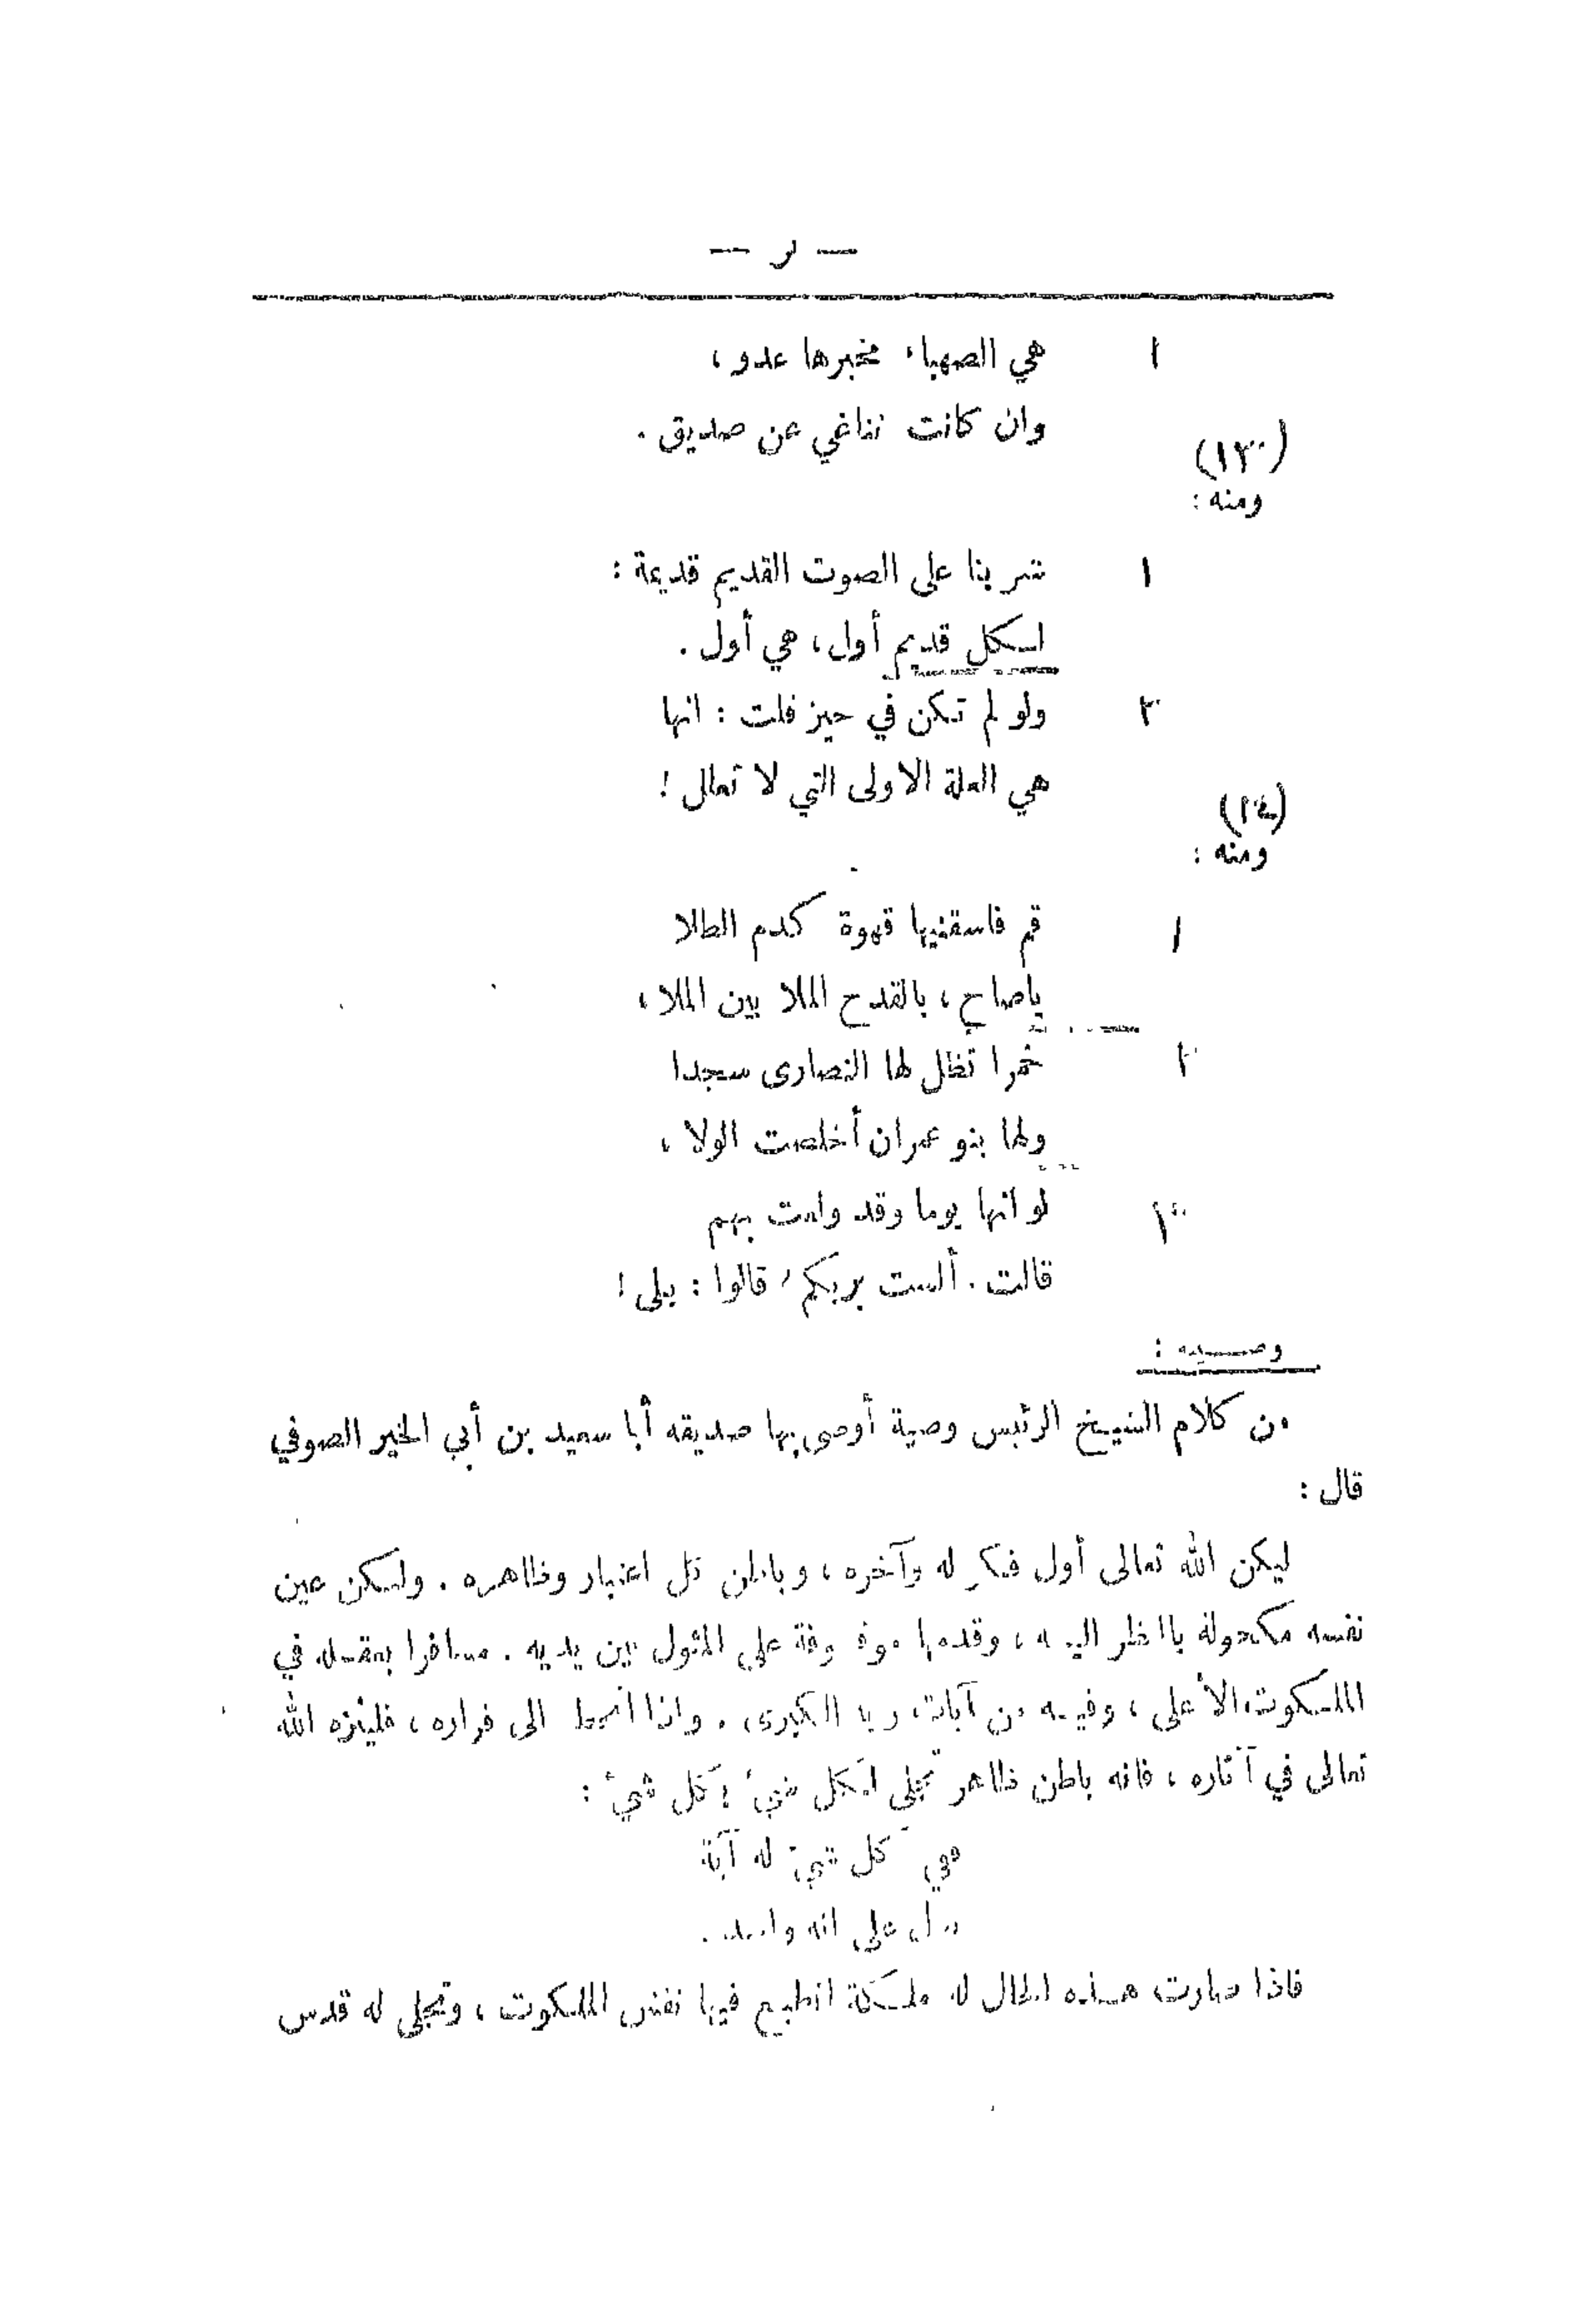 — لر —
١ هي الصهباء مخبرها عدو ،
وان كانت تناغي عن صديق .
(١٣)
ومنه :
١ شربنا على الصوت القديم قديمة :
لكل قديم أول ، هي أول .
٢ ولو لم تكن في حيز قلت : انها
هي العلة الاولى التي لا تعلل !
(١٤)
ومنه :
١ قم فاسقنيها قهوة كدم الطلا
ياصاح ، بالقدح الملا بين الملا ،
٢ خمرا تظل لها النصارى سجدا
ولها بنو عمران أخلصت الولا ،
٣ لو انها يوما وقد ولعت بهم
قالت . ألست بربكم ، قالوا : بلى !
وصـــيه :
من كلام الشيخ الرئيس وصية أوصى بها صديقه أبا سعيد بن أبي الخير الصوفي
قال :
ليكن الله تعالى أول فكر له وآخره ، وباطن كل اعتبار وظاهره . ولتكن عين
نفسه مكحولة بالنظر اليه ، وقدمها موقوفة على المثول بين يديه . مسافرا بعقله في
الملكوت الأعلى ، وفيه من آيات ربه الكبرى . واذا انحط الى قراره ، فلينزه الله
تعالى في آثاره ، فانه باطن ظاهر تجلى لكل شيء بكل شيء :
ففي كل شيء له آية
تدل على انه واحد .
فاذا صارت هذه الحال له ملكة انطبع فيها نقش الملكوت ، وتجلى له قدس